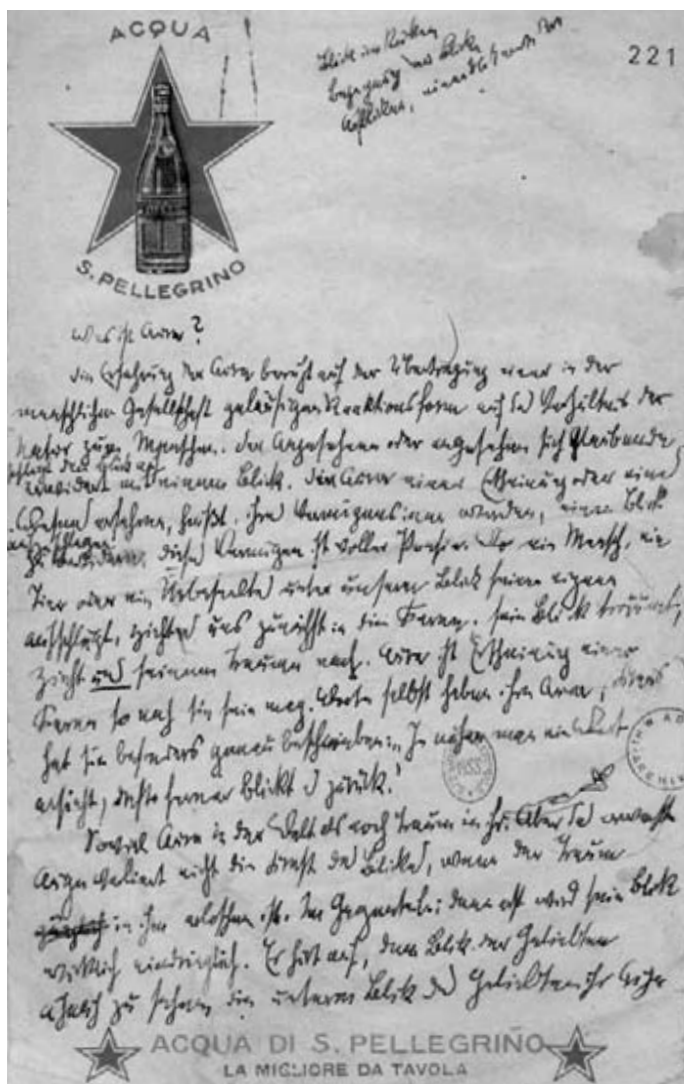 ACQUA
221
S. PELLEGRINO
Blick im Rücken
Begegnung der Blicke
Aufblicken,
Was ist Aura?
Die Erfahrung der Aura beruht auf der Übertragung einer in der
menschlichen Gesellschaft geläufigen Reaktionsform auf das Verhältnis der
Natur zum Menschen. Der Angesehene oder angesehen sich Glaubende
schlägt den Blick auf
erwidert mit einem Blick. Die Aura einer Erscheinung oder eines
Wesens erfahren, heißt, ihres Vermögens inne werden, einen Blick
aufzuschlagen
zu erwidern. Dieses Vermögen ist voller Poesie. Wo ein Mensch, ein
Tier oder ein Unbeseeltes unter unserm Blick seinen eignen
aufschlägt, zieht er uns zunächst in die Ferne; sein Blick träumt,
zieht uns seinem Traume nach. Aura ist Erscheinung einer
Ferne so nah sie sein mag. Worte selbst haben ihre Aura; Kraus
hat sie besonders genau beschrieben: „Je näher man ein Wort
ansieht, desto ferner blickt es zurück."
Soviel Aura in der Welt als noch Traum in ihr. Aber das erwachte
Auge verlernt nicht die Kraft des Blicks, wenn der Traum
in ihm erloschen ist. Im Gegenteil: dann erst wird sein Blick
wirklich eindringlich. Er hört auf, dem Blick der Geliebten
ähnlich zu sehen die unterm Blick des Geliebten ihr Auge
ACQUA DI S. PELLEGRINO
LA MIGLIORE DA TAVOLA